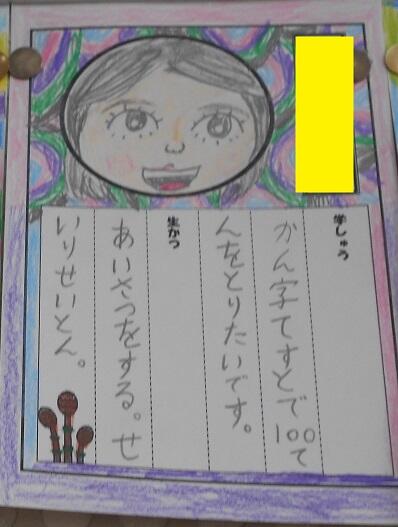 学しゅう
かん字てすとで100て
んをとりたいです。
生かつ
あいさつをする。せ
いりせいとん。